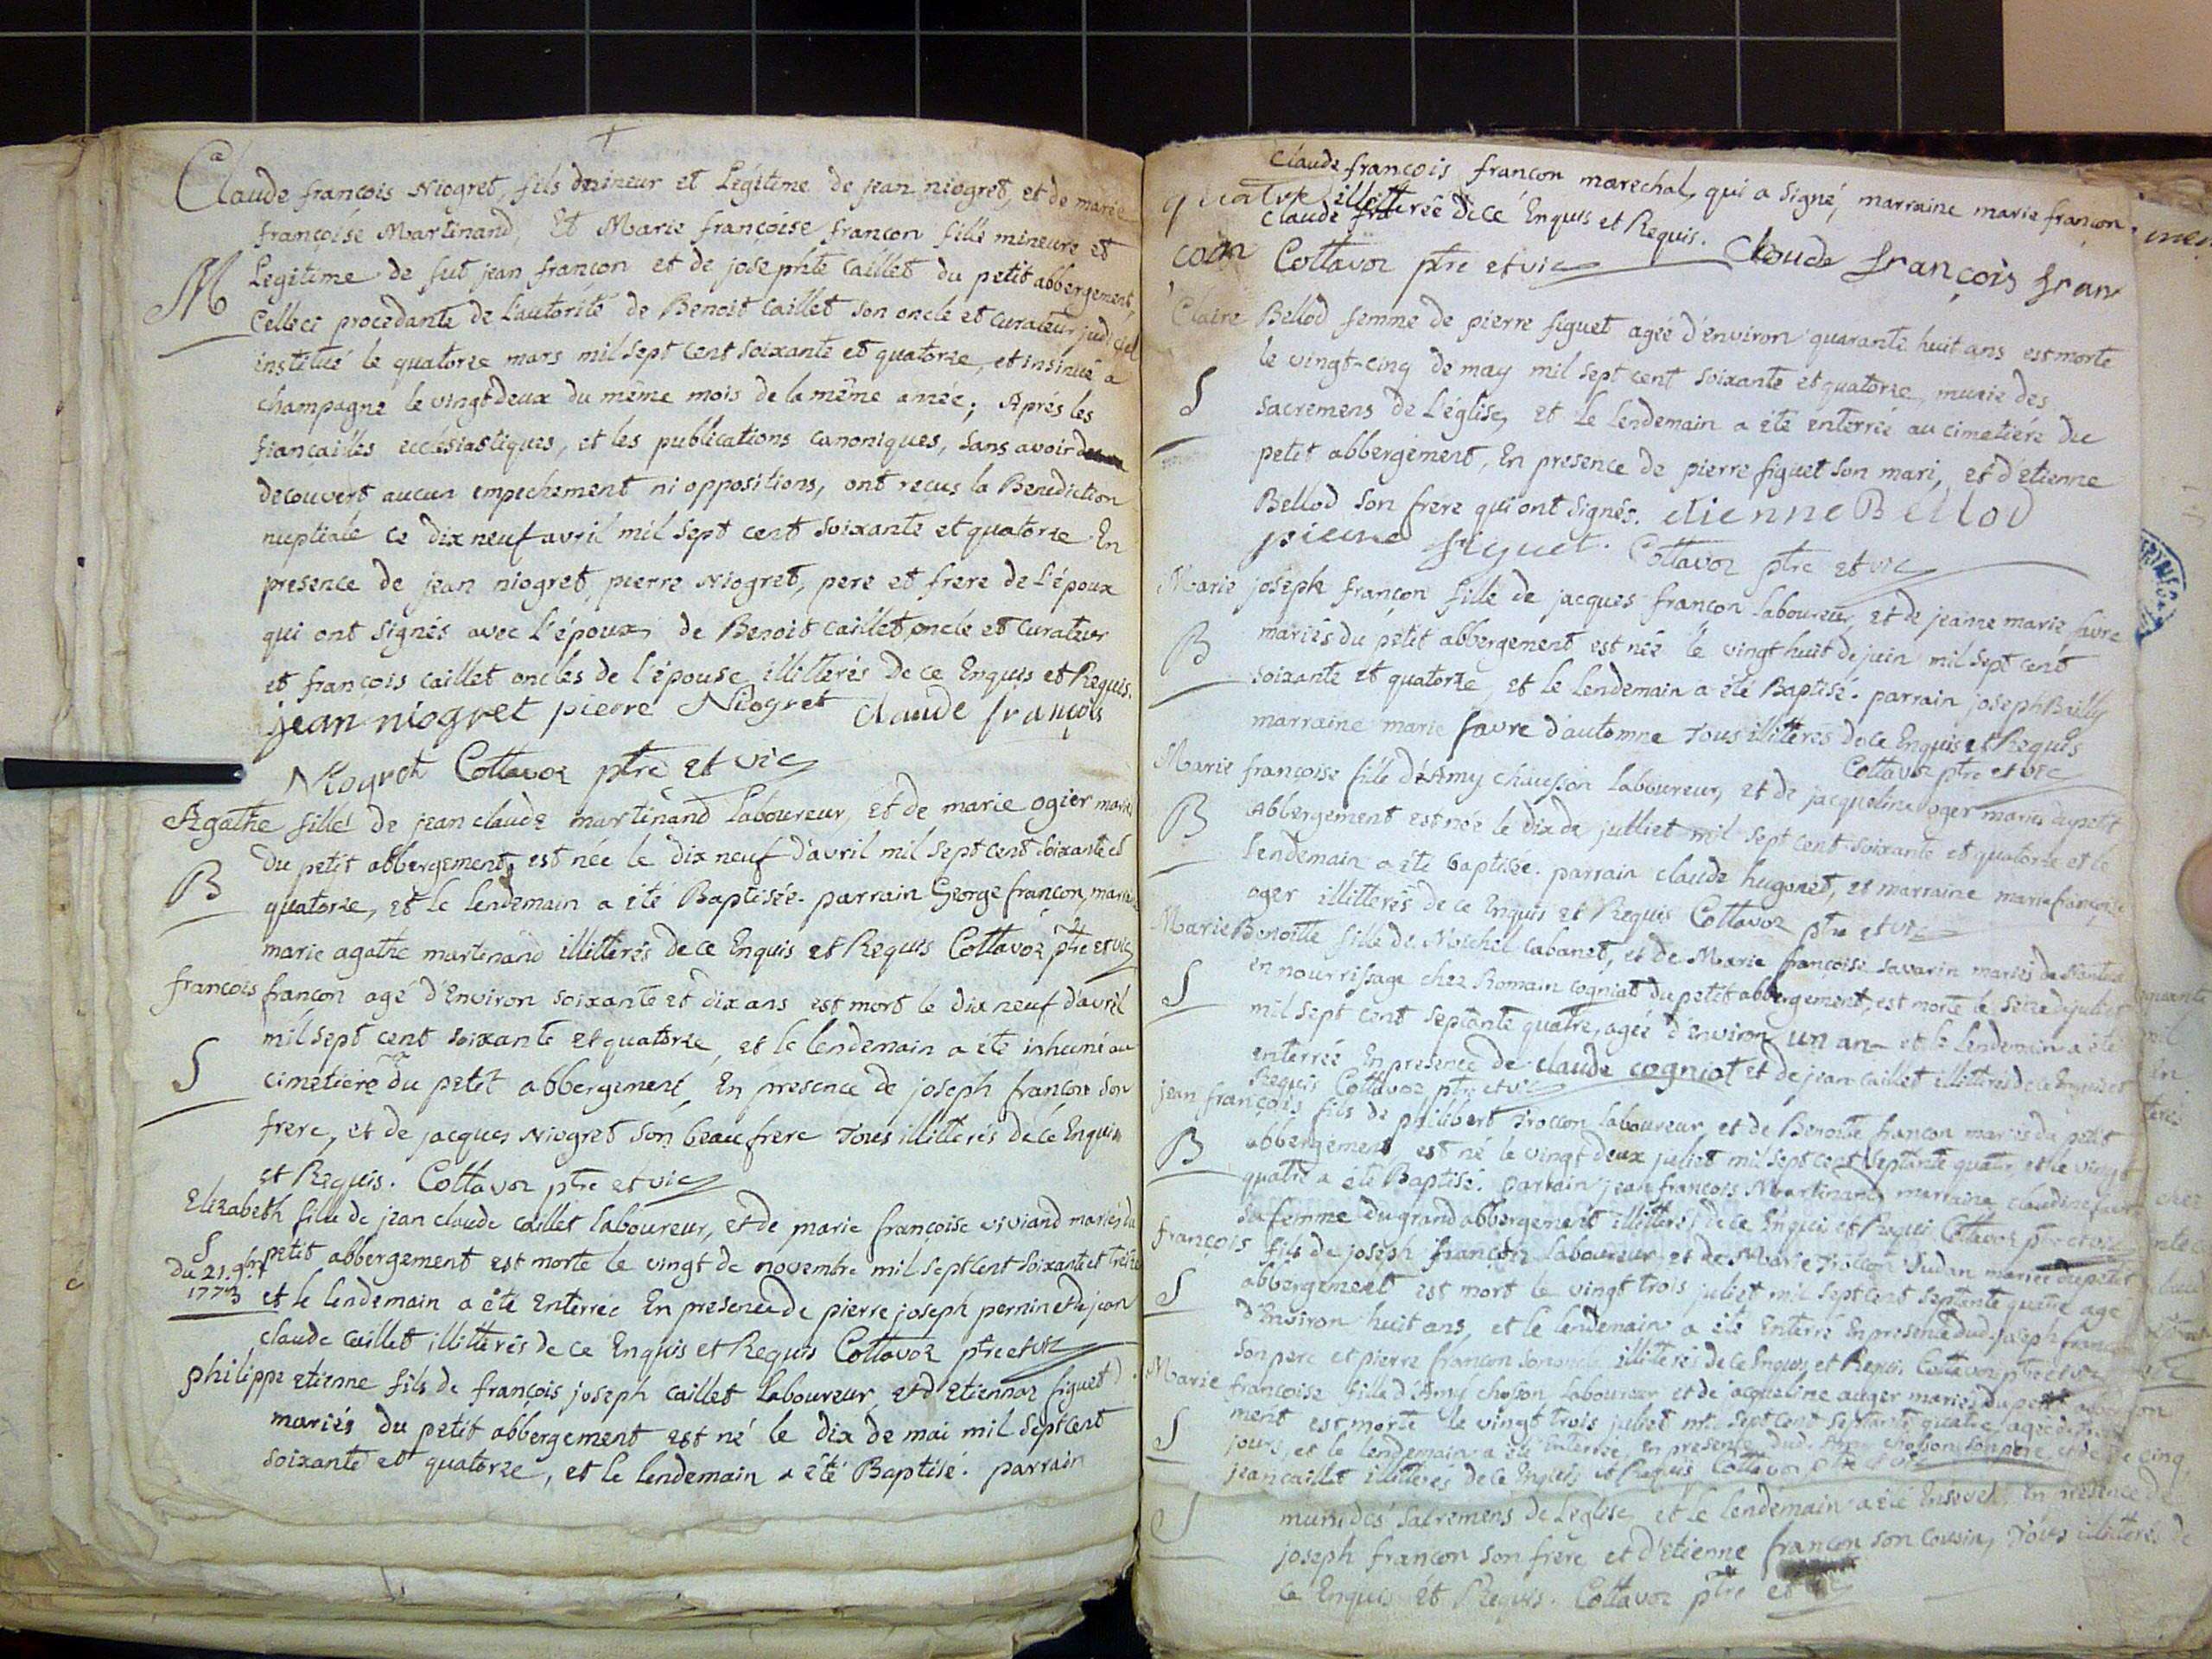 Claude françois Niogret, fils mineur et Légitime de jean niogret, et de marie
françoise Martinand, Et Marie françoise françon fille mineure et
M
Legitime de fut jean françon et de josephte Caillet du petit abbergement,
Celleci procedante de L'autorité de Benoit Caillet son oncle et curateur judiciel
institué le quatorze mars mil sept cent soixante et quatorze, et insinué a
champagne le vingt deux du même mois de la même année; Aprés les
fiançailles ecclésiastiques, et les publications canoniques, sans avoir
decouvert aucun empechement ni oppositions, ont recus la Benediction
nuptiale ce dix neuf avril mil sept cent soixante et quatorze En
presence de jean niogret, pierre Niogret, pere et frere de L'époux
qui ont signés avec L'époux, de Benoit caillet oncle et curateur
et françois caillet oncles de l'épouse illitterés de ce Enquis et Requis.
jean niogret pierre Niogret Claude françois
Niogret Cottavoz ptre et vic
Agathe fille de jean claude martinand Laboureur, et de marie ogier mariés
B
du petit abbergement est née le dix neuf d'avril mil sept cent soixante et
quatorze, et le lendemain a été Baptisée. parrain George françon, marraine
marie agathe martinand illitterés de ce Enquis et Requis Cottavoz ptre et vic
françois françon agé d'Environ soixante et dix ans est mort le dix neuf d'avril
mil sept cent soixante et quatorze, et le lendemain a été inhumé au
S
cimetiére du petit abbergement, En presence de joseph françon son
frere, et de jacques Niogret son beau frere Tous illitterés de ce Enquis
et Requis. Cottavoz ptre et vic
Elizabeth fille de jean claude caillet laboureur, et de marie françoise viviand mariés du
S
du 21. 9bre
1773
petit abbergement est morte le vingt de novembre mil sept cent soixante et treize
et le lendemain a été Enterrée En presence de pierre joseph pernin et de jean
claude caillet illitterés de ce Enquis et Requis Cottavoz ptre et vic
philippe etienne fils de françois joseph caillet Laboureur, et d'etiennaz figuet
mariés du petit abbergement est né le dix de mai mil sept cent
soixante et quatorze, et le lendemain a été Baptisé. parrain
Claude françois françon marechal, qui a signé, marraine marie françon
quatre illitterée de ce Enquis et Requis.
con Cottavoz ptre et vic Claude françois fran
Claire Bellod femme de pierre figuet agée d'environ quarante huit ans est morte
le vingt-cinq de may mil sept cent soixante et quatorze, munie des
S
sacremens de L'église, et Le Lendemain a été enterrée au cimetiére du
petit abbergement, En presence de pierre figuet son mari, et d'etienne
Bellod son frere qui ont signés. etienne Bellod
pierre figuet. Cottavoz ptre et vic
Marie joseph françon fille de jacques françon Laboureur, et de jeanne marie favre
B
mariés du petit abbergement est née le vingt huit de juin mil sept cent
soixante et quatorze, et le lendemain a été Baptisé. parrain joseph Bailly
marraine marie favre d'automne Tous illitterés de ce Enquis et Requis
Cottavoz ptre et vic
Marie françoise fille d'Amy chausson Laboureur, et de jacqueline oger mariés du petit
B
Abbergement est née le dix de julliet mil sept cent soixante et quatorze et le
Lendemain a été baptisée. parrain claude hugonet, et marraine marie françoise
oger illitterés de ce Enquis et Requis Cottavoz ptre et vic
Marie Benoitte fille de Michel Cabanet, et de Marie françoise savarin mariés de Nantua
S
en nourrissage chez Romain cogniat du petit abbergement, est morte le seize de juliet
mil sept cent septante quatre, agée d'environ un an et le Lendemain a été
enterrée En presence de claude cogniat et de jean caillet illitterés de ce Enquis et
Requis Cottavoz ptre et vic
jean françois fils de philibert Trocon Laboureur et de Benoite françon mariés du petit
B
abbergement est né le vingt deux juliet mil sept cent septante quatre et le vingt
quatre a été Baptisé. parrain jean françois Martinand marraine claudine
sa femme du grand abbergement illitterés de ce Enquis et Requis Cottavoz ptre et vic
françois fils de joseph françon Laboureur et de Marie Trocon Judan mariés du petit
S
abbergement est mort le vingt trois juliet mil sept cent septante quatre agé
d'Environ huit ans, et le lendemain a été Enterré En presence dud. joseph françon
son pere et pierre françon son oncle illitterés de ce Enquis et Requis Cottavoz ptre et vic
Marie francoise fille d'Amy choson Laboureur et de jacqueline auger mariés du petit
S
ment est morte le vingt trois juliet mil sept cent septante quatre, agée de
jours, et le lendemain a été Enterrée, En presence dud. Amy choson son pere, et de
jean caillet illitterés de ce Enquis et Requis Cottavoz ptre et vic
S
muni des sacremens de L'eglise, et le lendemain a été Enseveli En presence de
joseph françon son frere et d'etienne françon son cousin, Tous illitterés de
ce Enquis et Requis. Cottavoz ptre et vic